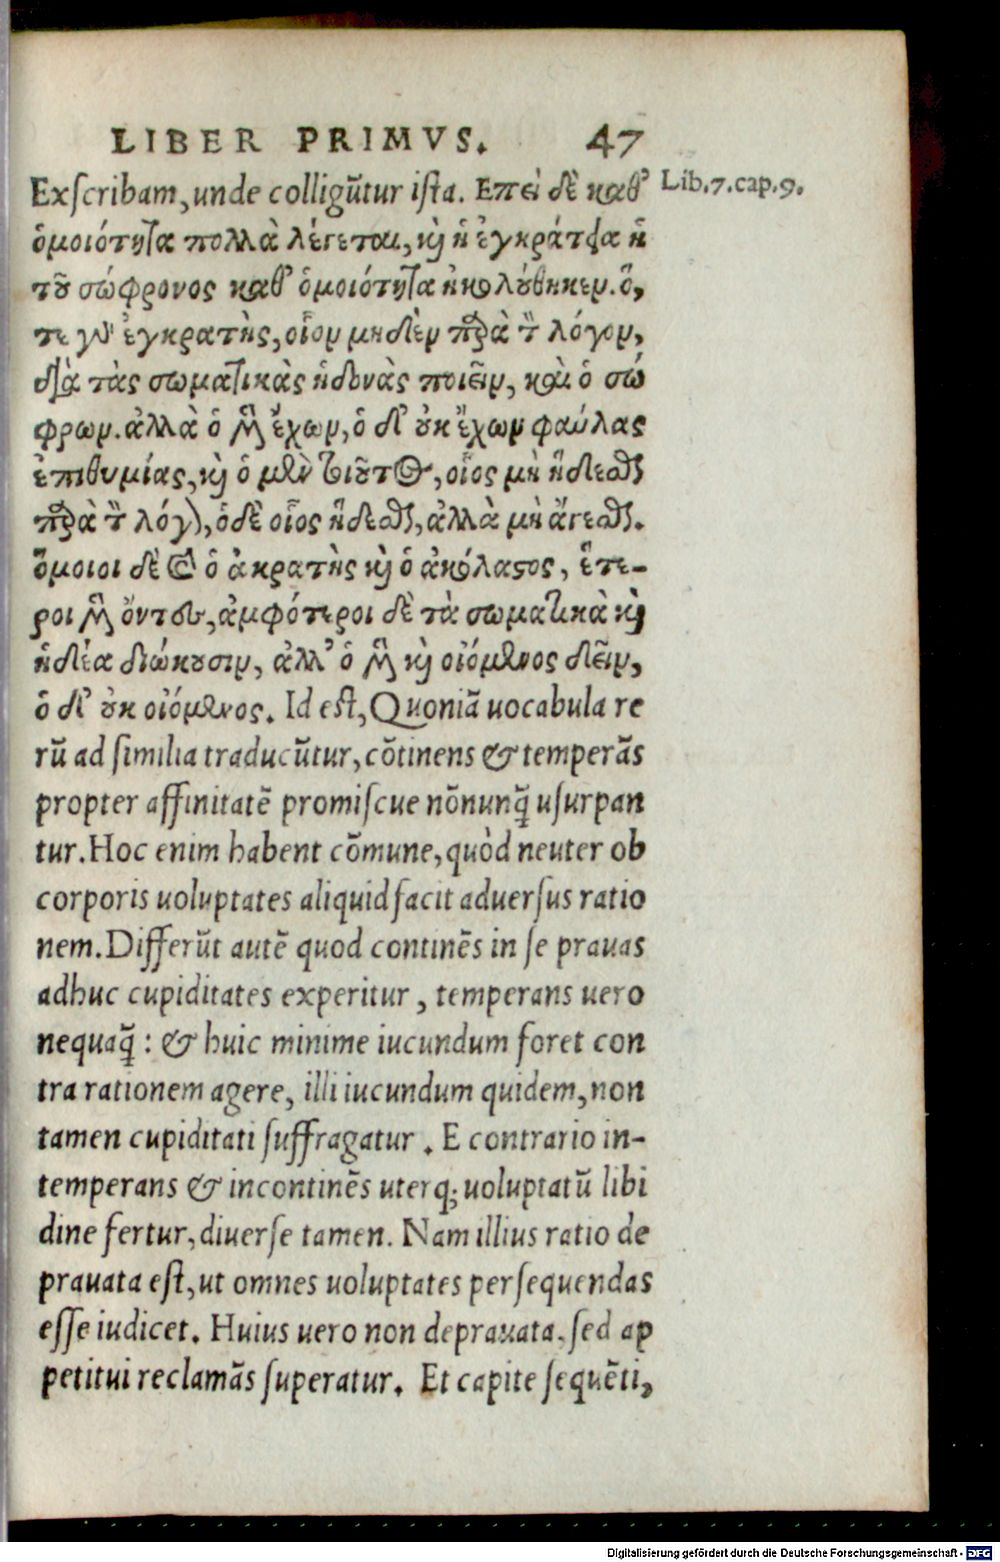 LIBER PRIMVS. 47
Exſcribam, unde colligūtur iſta. Επεὶ δὲ καθ' Lib.7.cap.9.
ὁμοιότητα πολλὰ λέγεται, καὶ ἡ ἐγκράτεια ἡ
τοῦ σώφρονος καθ' ὁμοιότητα ἠκολούθηκεν. ὅ,
τε γὰρ ἐγκρατὴς, οἷον μηδὲν παρὰ τὸν λόγον,
διὰ τὰς σωματικὰς ἡδονὰς ποιεῖν, καὶ ὁ σώ
φρων. ἀλλὰ ὁ μὲν ἔχων, ὁ δ' οὐκ ἔχων φαύλας
ἐπιθυμίας, καὶ ὁ μὲν τοιοῦτος, οἷος μὴ ἥδεσθαι
παρὰ τὸν λόγον, ὁ δὲ οἷος ἥδεσθαι, ἀλλὰ μὴ ἄγεσθαι.
ὅμοιοι δὲ καὶ ὁ ἀκρατὴς καὶ ὁ ἀκόλαστος, ἕτε-
ροι μὲν ὄντες, ἀμφότεροι δὲ τὰ σωματικὰ καὶ
ἡδέα διώκουσιν, ἀλλ' ὁ μὲν καὶ οἰόμενος δεῖν,
ὁ δ' οὐκ οἰόμενος. Id eſt, Quoniā uocabula re
rū ad ſimilia traducūtur, cōtinens & temperās
propter affinitatē promiſcue nōnunq̄ uſurpan
tur. Hoc enim habent cōmune, quòd neuter ob
corporis uoluptates aliquid facit aduerſus ratio
nem. Differūt autē quod continēs in ſe prauas
adhuc cupiditates experitur, temperans uero
nequaq̄: & huic minime iucundum foret con
tra rationem agere, illi iucundum quidem, non
tamen cupiditati ſuffragatur. E contrario in-
temperans & incontinēs uterq; uoluptatū libi
dine fertur, diuerſe tamen. Nam illius ratio de
prauata eſt, ut omnes uoluptates perſequendas
eſſe iudicet. Huius uero non deprauata, ſed ap
petitui reclamās ſuperatur. Et capite ſequēti,
Digitalisierung gefördert durch die Deutsche Forschungsgemeinschaft - DFG